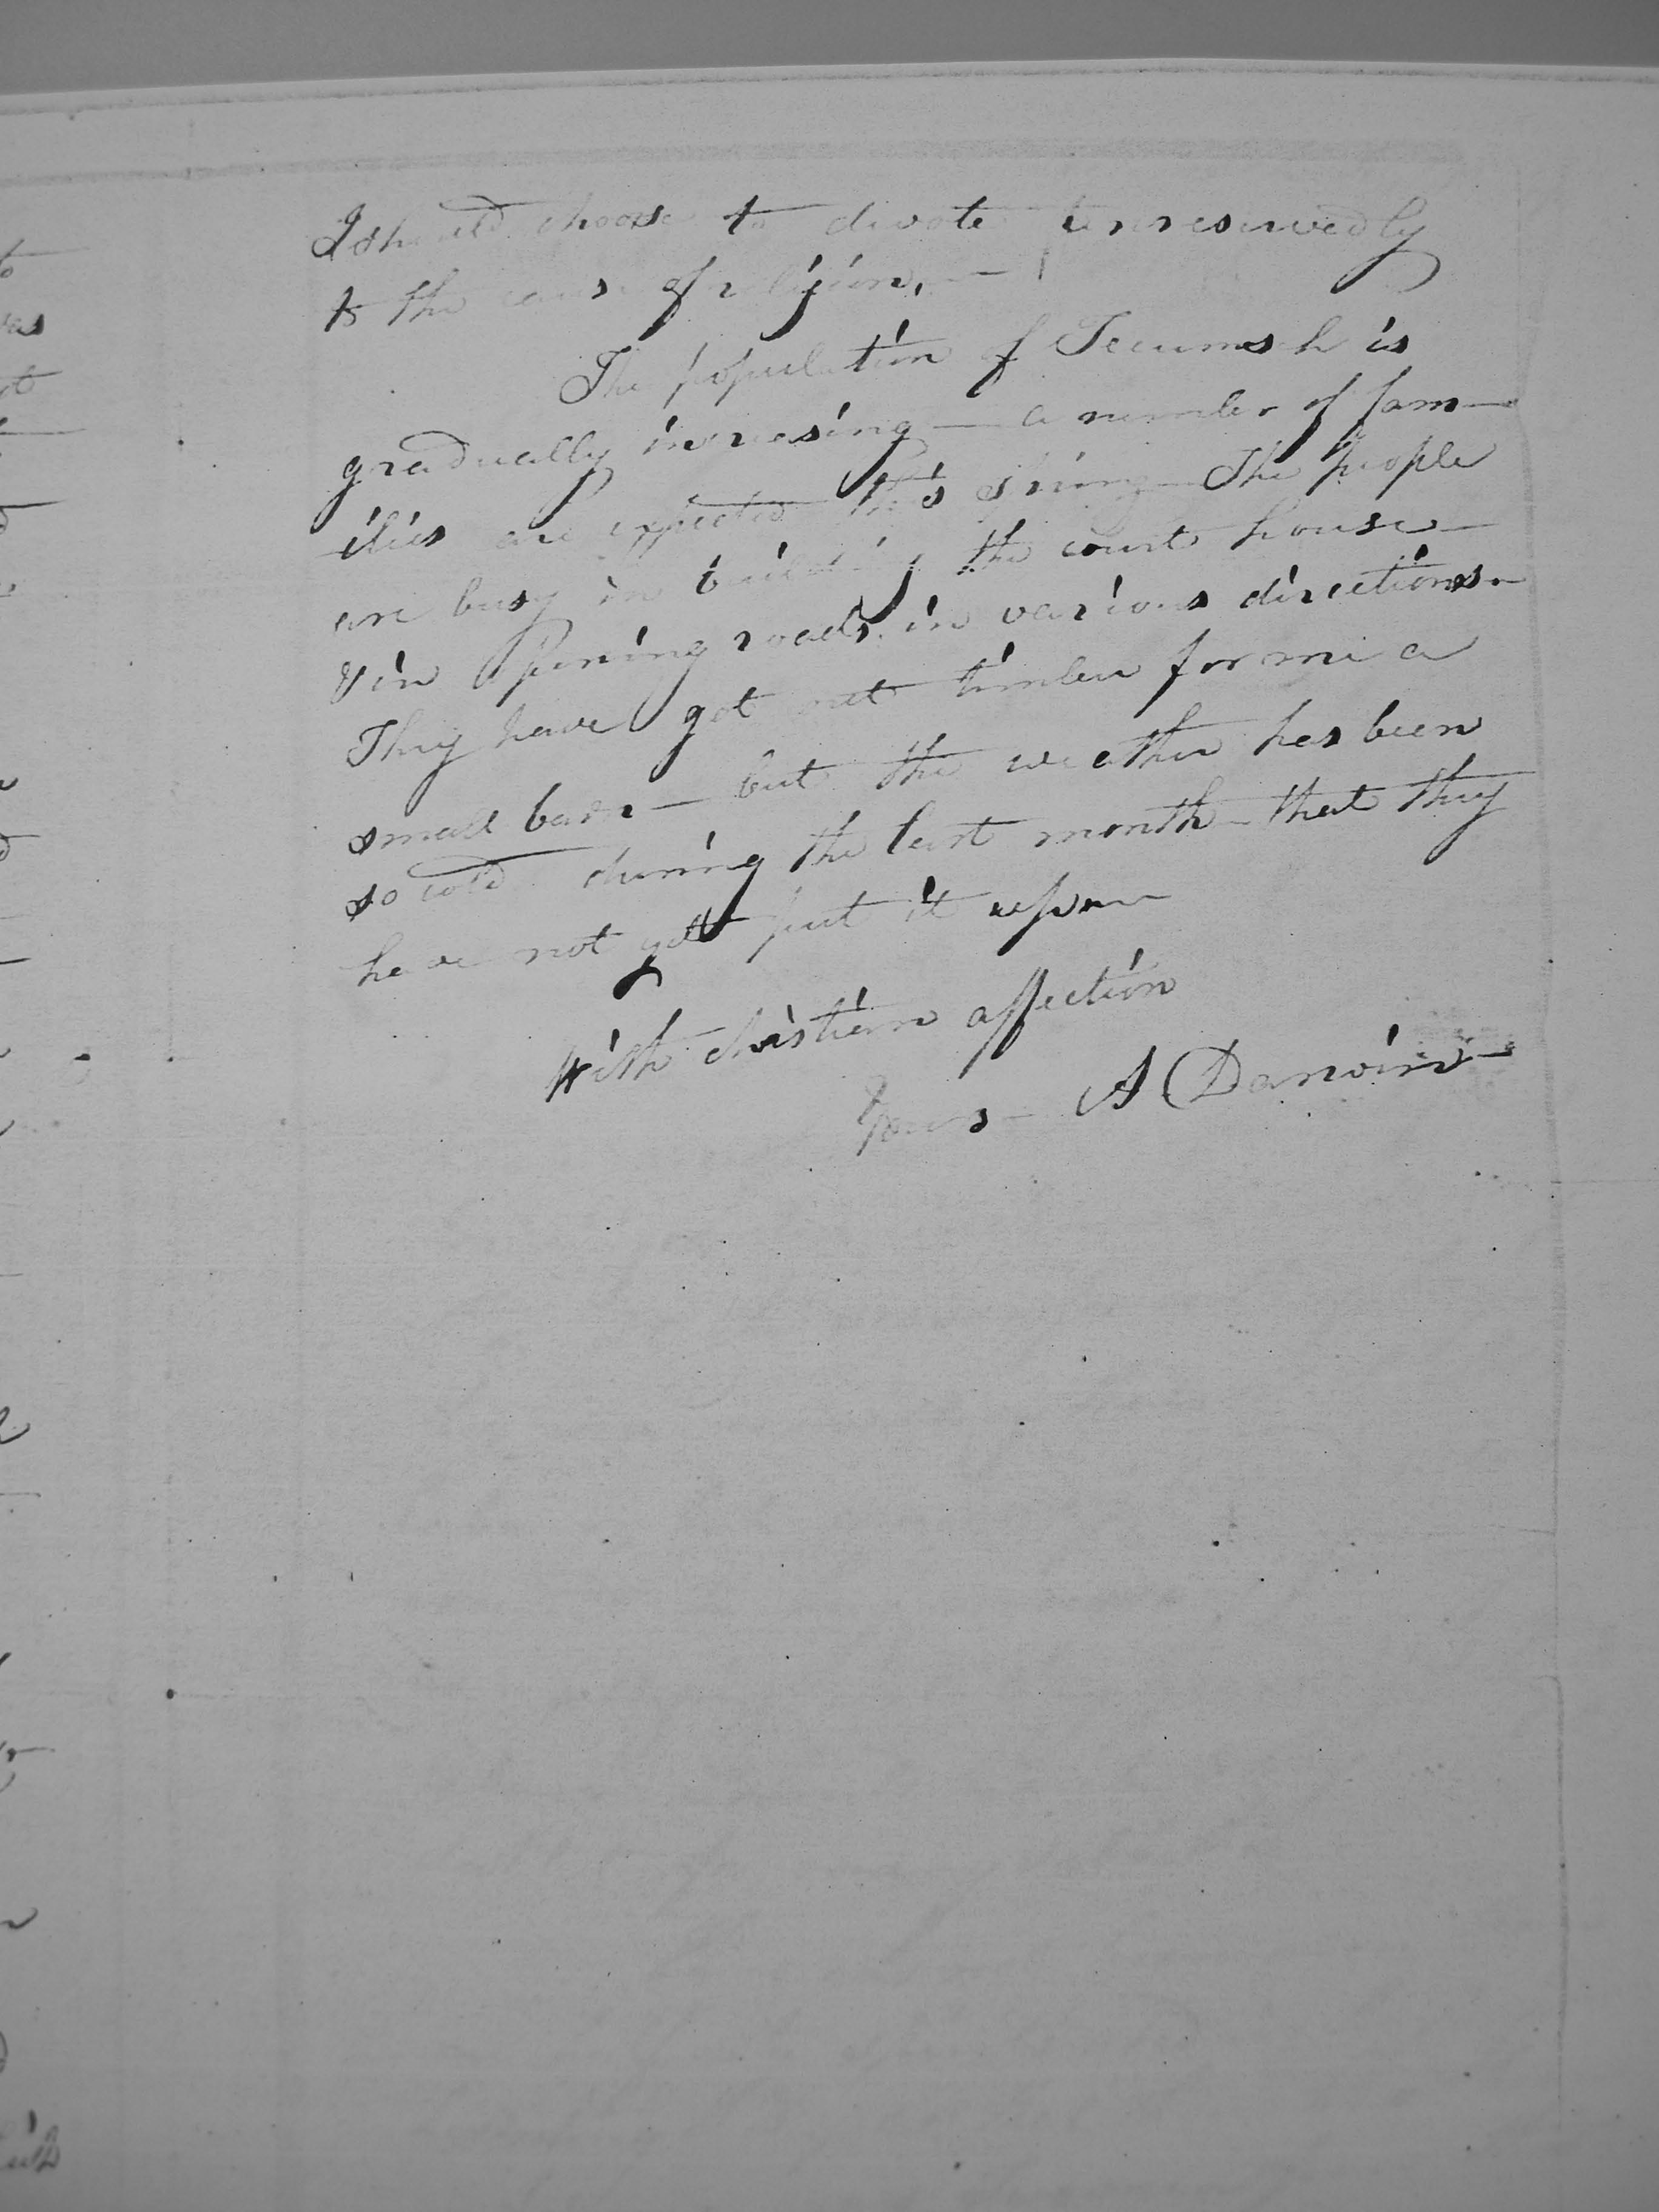 I should choose to devote unreservedly
to the cause of religion. —
The population of Tecumseh is
gradually increasing — a number of fam-
ilies are expected this spring — The people
are busy in building the court house —
& in opening roads in various directions —
They have got out timber for me a
small barn — but the weather has been
so cold during the last month — that they
have not yet put it up —
With christian affection
Yours — A Darwin —